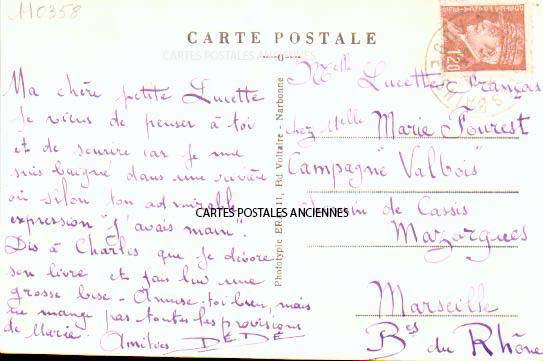 110358
CARTE POSTALE
CARTES POSTALES ANCIENNES
Ma chère petite Lucette
Je viens de penser à toi
et de sourire car je me
suis baigné dans une rivière
où selon ton admirable
expression "j'avais main".
Dis à Charles que je dévore
son livre et fais lui une
grosse bise - Amuse-toi bien, mais
ne mange pas toutes les provisions
de Marie Amitiés DÉDÉ
Phototypie ER 11, Bd Voltaire - Narbonne
1f20
Melle Lucette Français
chez Melle Marie Fourest
Campagne "Valbois"
Chemin de Cassis
CARTES POSTALES ANCIENNES
Mazargues
Marseille
Bes du Rhône